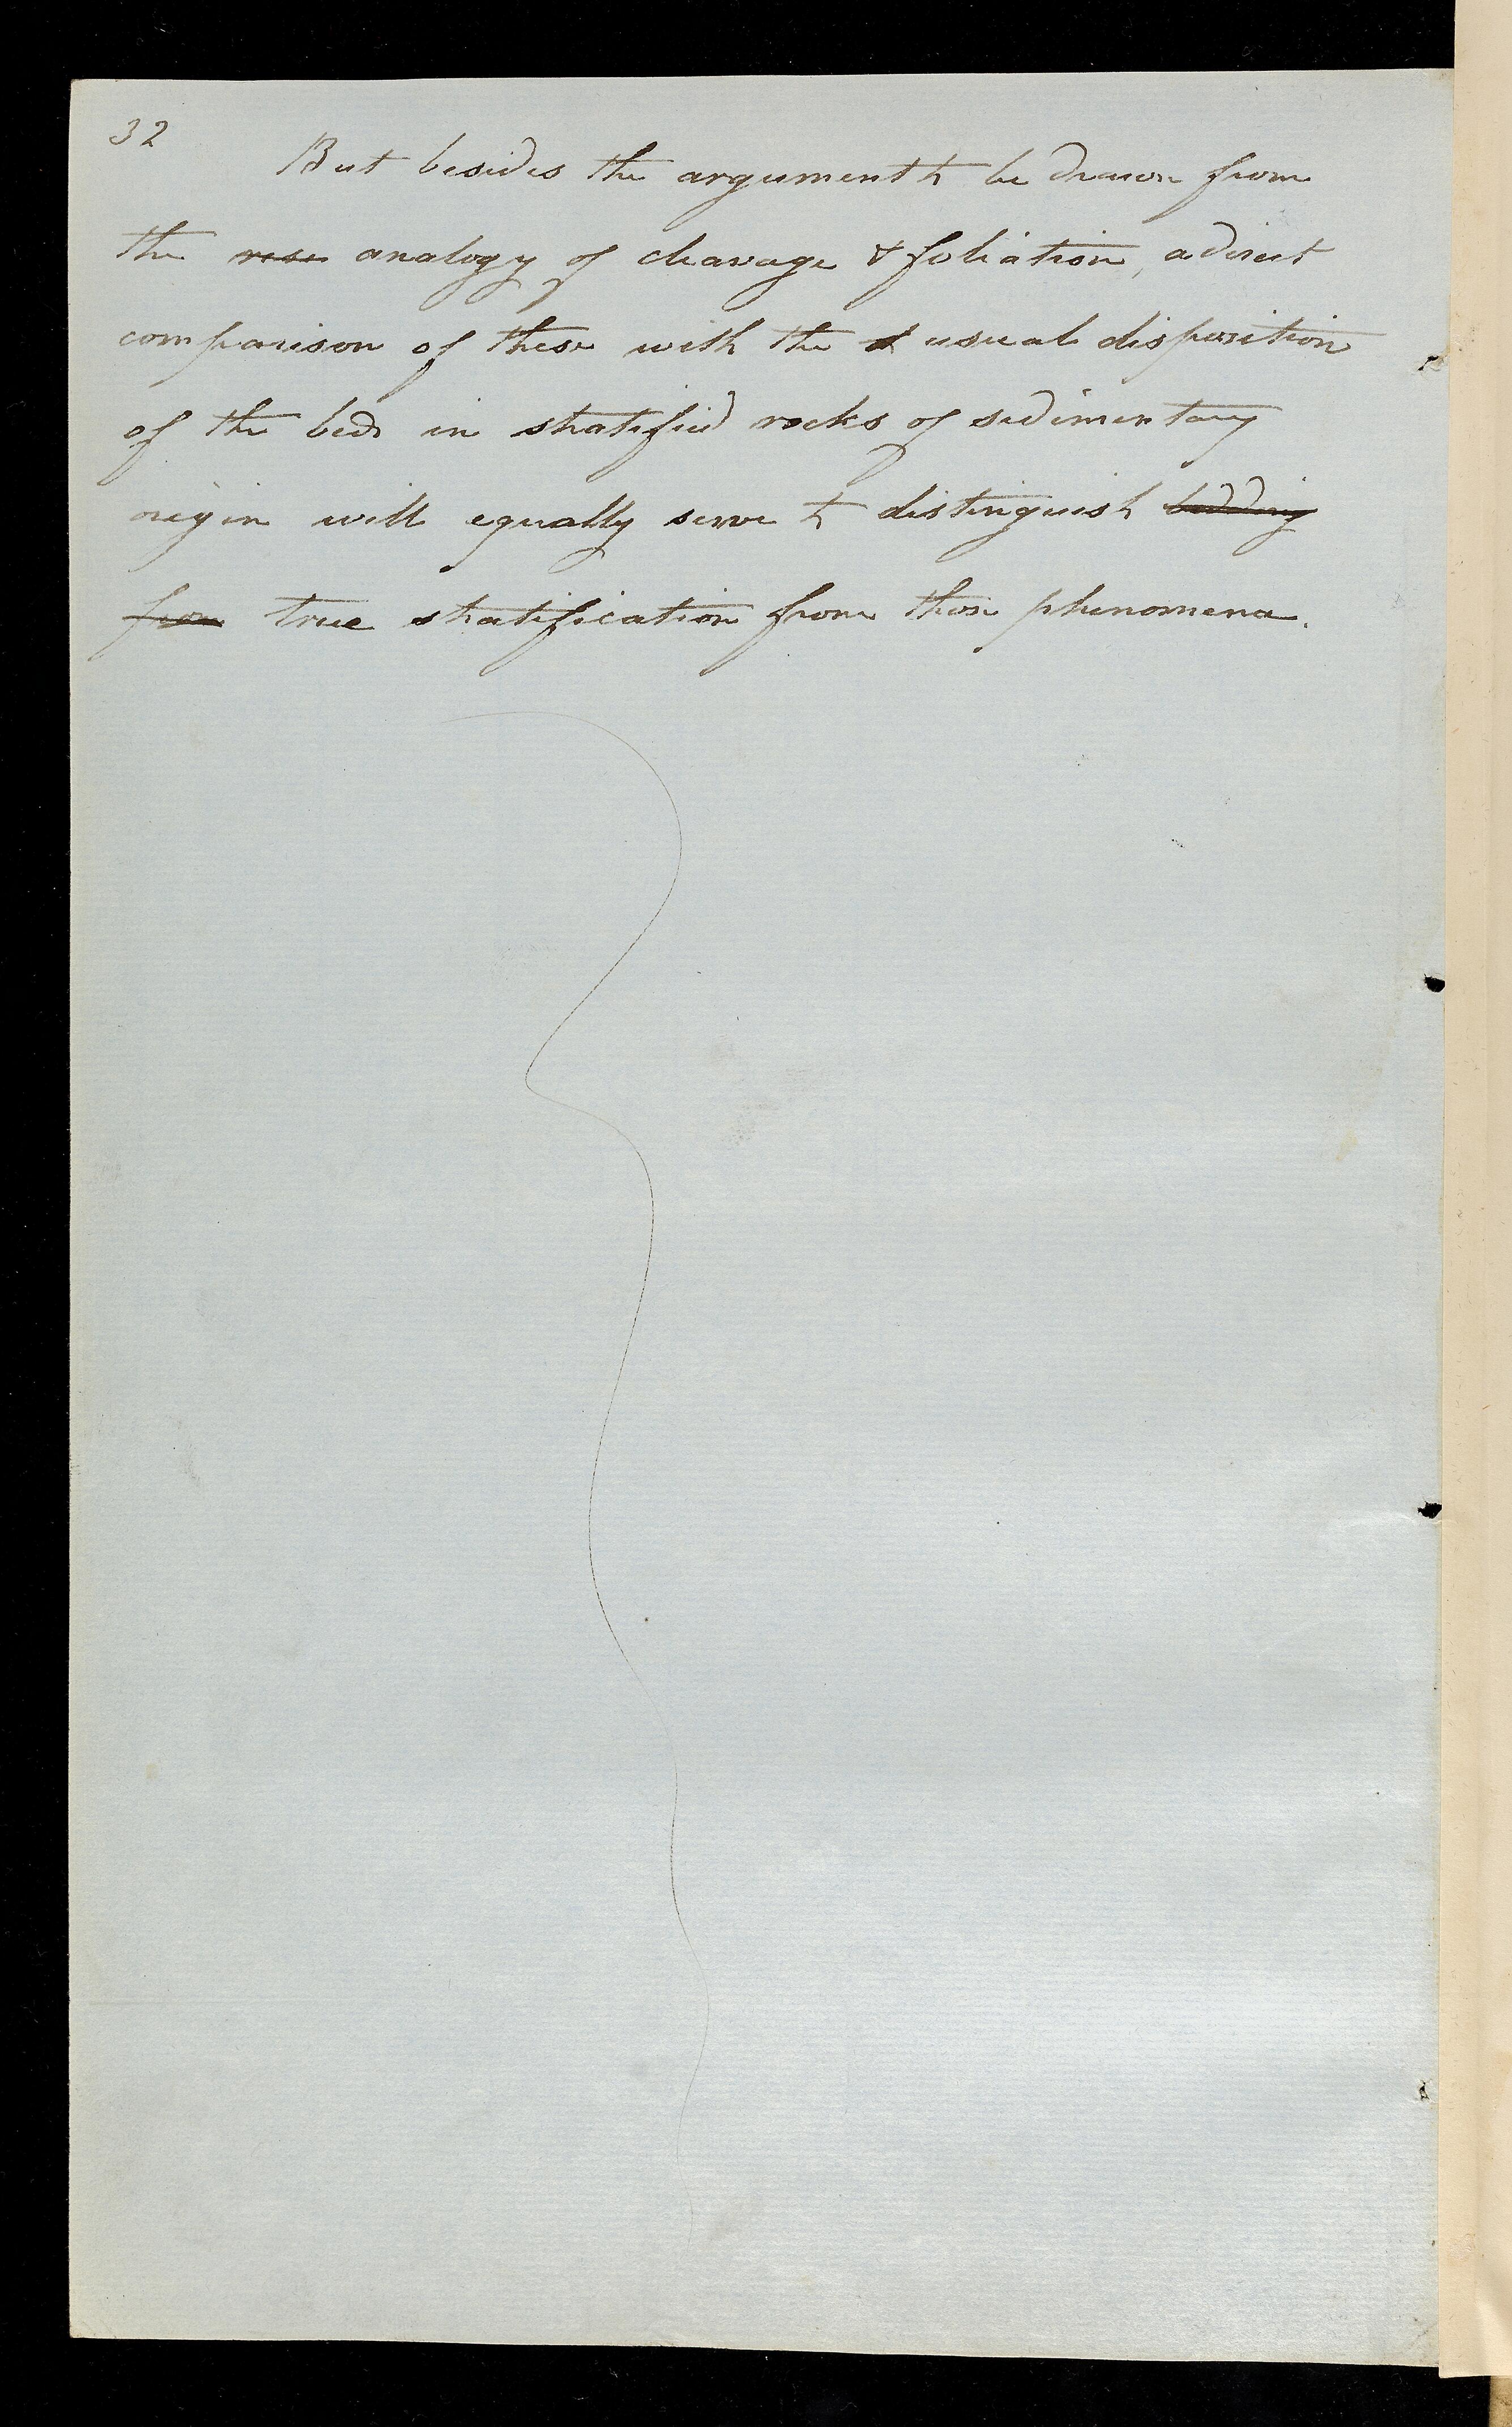 32
But besides the argument to be drawn from
the analogy of cleavage & foliation, a direct
comparison of these with the usual disposition
of the beds in stratified rocks of sedimentary
origin will equally serve to distinguish bedding
from true stratification from these phenomena.